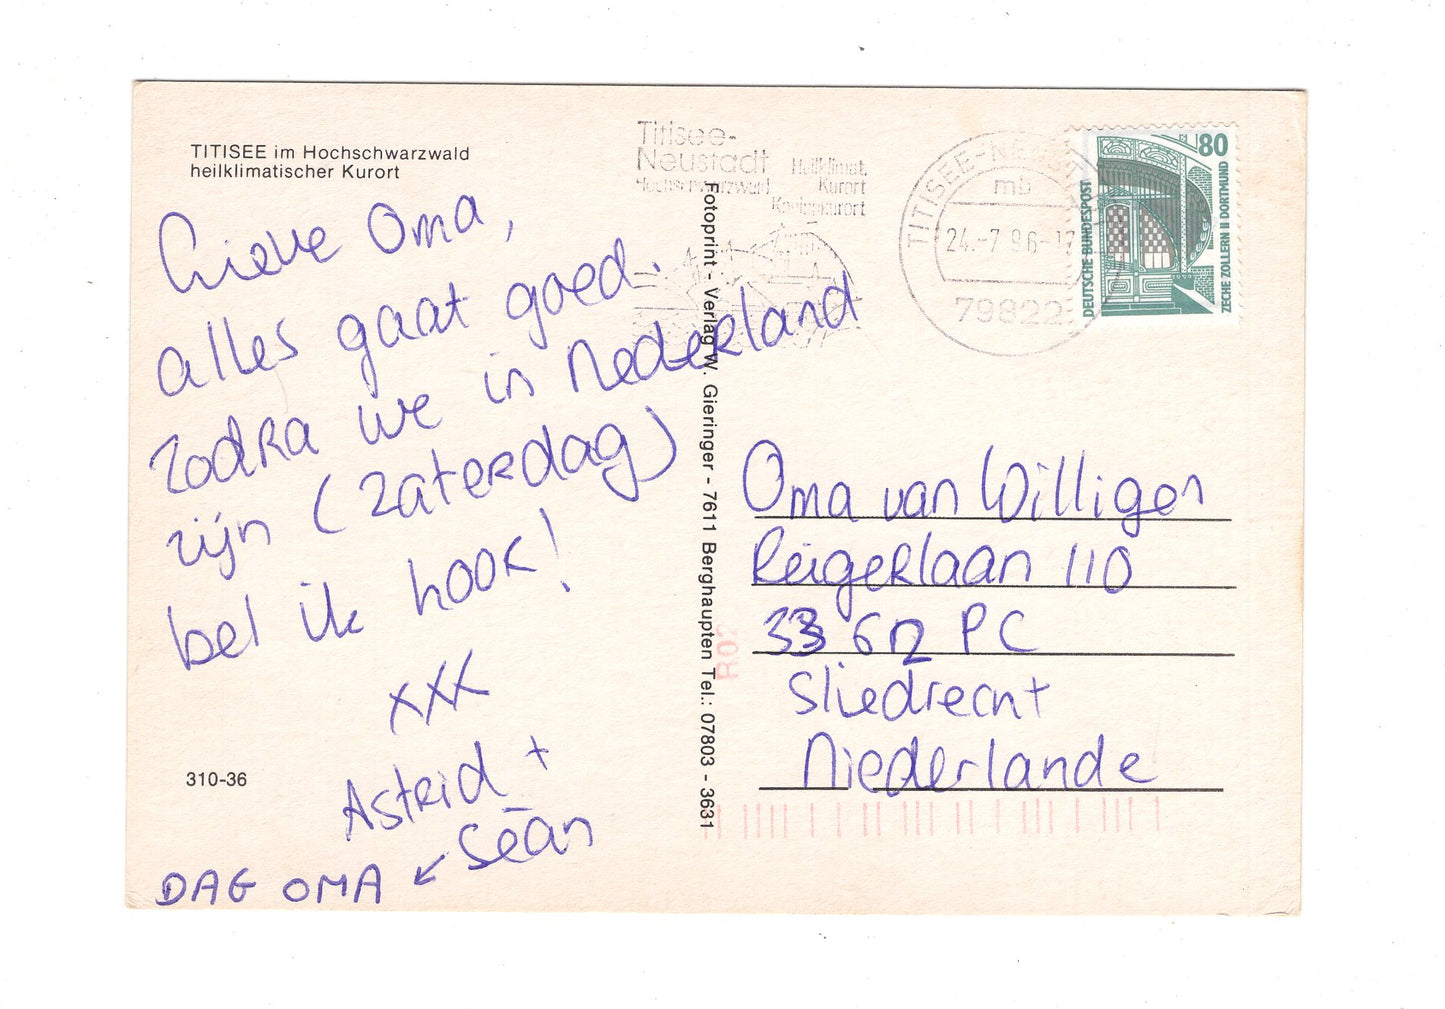 TITISEE im Hochschwarzwald
heilklimatischer Kurort
Lieve Oma,
alles gaat goed.
zodra we in Nederland
zijn (zaterdag)
bel ik hoor!
xxx
Astrid +
Seān
DAG OMA ↙
310-36
Fotoprint - Verlag W. Gieringer - 7611 Berghaupten Tel.: 07803 - 3631
Titisee-
Neustadt
Hochschwarzwald
Heilklimat.
Kurort
Kneippkurort
TITISEE-NEUS
mb
24.-7.96-17
79822
80
DEUTSCHE BUNDESPOST
ZECHE ZOLLERN II DORTMUND
Oma van Willigen
Reigerlaan 110
3362 PC
Sliedrecht
Niederlande